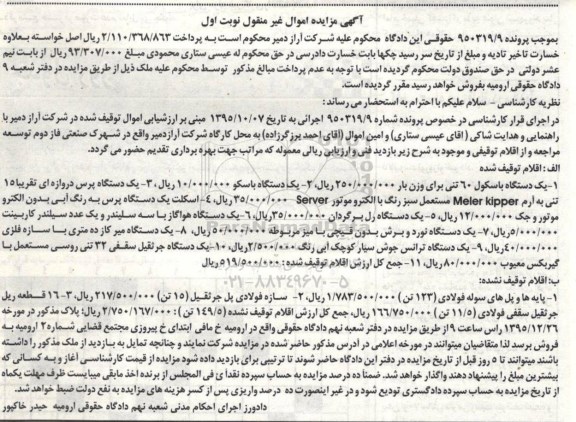 آگهی مزایده اموال غیر منقول نوبت اول
بموجب پرونده ۹۵۰۳۱۹/۹ حقوقـی این دادگاه محکوم علیه شـرکت آراز دمیر محکوم اسـت بـه پرداخت ۲/۱۱۰/۳۶۸/۸۶۳ ریال اصل خواسـته بـعلاوه
خسارت تاخیر تادیه و مبلغ از تاریخ سر رسید چکها بابت خسارت دادرسی در حق محکوم له عیسی ستاری محمودی مبلغ ۹۳/۳۰۷/۰۰۰ ریال از بابت نیم
عشر دولتی در حق صندوق دولت محکوم گردیده است با توجه به عدم پرداخت مبالغ مذکور توسط محکوم علیه ملک ذیل از طریق مزایده در دفتر شعبـه ۹
دادگاه حقوقی ارومیه بفروش خواهد رسید مقرر گردیده است.
نظریه کارشناسی - سلام علیکم با احترام به استحضار می رساند :
در اجرای قرار کارشناسی در خصوص پرونده شماره ۹۵۰۳۱۹/۹ اجرائی به تاریخ ۱۳۹۵/۱۰/۰۷ مبنی بر ارزشیابی اموال توقیف شده در شرکت آراز دمیر با
راهنمایی و هدایت شاکی ( اقای عیسی ستاری) و امین اموال (آقای احمد پرزگرزاده) به محل کارگاه شرکت آرازدمیر واقع در شـهرک صنعتی فاز دوم توسـعه
مراجعه و از اقلام توقیفی و موجود به شرح زیر بازدید فنی و ارزیابی ریالی معموله که مراتب جهت بهره برداری تقدیم حضور می گردد.
الف : اقلام توقیف شده
۱- یک دستگاه باسکول ۶۰ تنی برای وزن بار ۲۵۰/۰۰۰/۰۰۰ ریال، ۲- یک دستگاه باسکو ۱۰/۰۰۰/۰۰۰ ریال، ۳- یک دستگاه پرس دروازه ای تقریبا ۱۵
تنی به آرم Meler kipper مستعمل سبز رنگ با الکترو موتور Server ۳۵/۰۰۰/۰۰۰ ریال، ۴- اسکلت یک دستگاه پرس به رنگ آبی بدون الکترو
موتور و جک ۱۲/۰۰۰/۰۰۰ ریال، ۵- یک دستگاه رل برگردان ۳۵/۰۰۰/۰۰۰ ریال، ۶- یک دستگاه هواگاز با سه سلیندر و یک عدد سیلندر کاربینت
۵/۰۰۰/۰۰۰ ریال، ۷- یک دستگاه نورد و برش بدون قیچی با میز مربوطه ۵۰/۰۰۰/۰۰۰ ریال، ۸- یک دستگاه میز کار ده متری با سازه فلزی
۴۰/۰۰۰/۰۰۰ ریال، ۹- یک دستگاه ترانس جوش سیار کوچک آبی رنگ ۲/۵۰۰/۰۰۰ ریال، ۱۰- یک دستگاه جرثقیل سقفی ۳۲ تنی روسی مستعمل با
گیربکس معیوب ۸۰/۰۰۰/۰۰۰ ریال، ۱۱- جمع کل ارزش اقلام توقیف شده : ۵۱۹/۵۰۰/۰۰۰ ریال
ب: اقلام توقیف نشده:
۱- پایه ها و پل های سوله فولادی (۱۲۳ تن) ۱/۷۸۳/۵۰۰/۰۰۰ ریال، ۲- سازه فولادی پل جرثقیل (۱۵ تن) ۲۱۷/۵۰۰/۰۰۰ ریال، ۳- ۱۶ قطعه ریل
جرثقیل سقفی فولادی (۱۱/۵ تن) ۱۶۶/۷۵۰/۰۰۰ ریال، جمع کل ارزش اقلام توقیف نشده (۱۴۹/۵ تن) : ۲/۷۵۰/۱۶۷/۰۰۰ ریال؛ پلاک مذکور در مورخه
۱۳۹۵/۱۲/۲۶ راس ساعت ۹ از طریق مزایده در دفتر شعبه نهم دادگاه حقوقی واقع در ارومیه خ مافی ابتدای خ پیروزی مجتمع قضایی شماره ۲ ارومیه به
فروش برسد لذا متقاضیان میتوانند در مورخه اعلامی در آدرس مذکور حاضر شده در مزایده شرکت نمایند و چنانچه تمایل به بازدید از ملک مذکور را داشته
باشند میتوانند تا ۵ روز قبل از تاریخ مزایده در دفتر این دادگاه حاضر شوند تا ترتیبی برای بازدید داده شود مزایده از قیمت کارشناسی آغاز و به کسانی که
بیشترین مبلغ را پیشنهاد دهند واگذار خواهد شد. ضمنا ده درصد مزایده به حساب سپرده نقداً فی المجلس از برنده اخذ مابقی میبایست ظرف مهلت یکماه
از تاریخ مزایده به حساب سپرده دادگستری تودیع شود و در غیر اینصورت ده درصد واریزی پس از کسر هزینه های مزایده به نفع دولت ضبط خواهد شد.
دادورز اجرای احکام مدنی شعبه نهم دادگاه حقوقی ارومیه حیدر خاکپور
۰۲۱-۸۸۳۴۹۶۷۰-۵